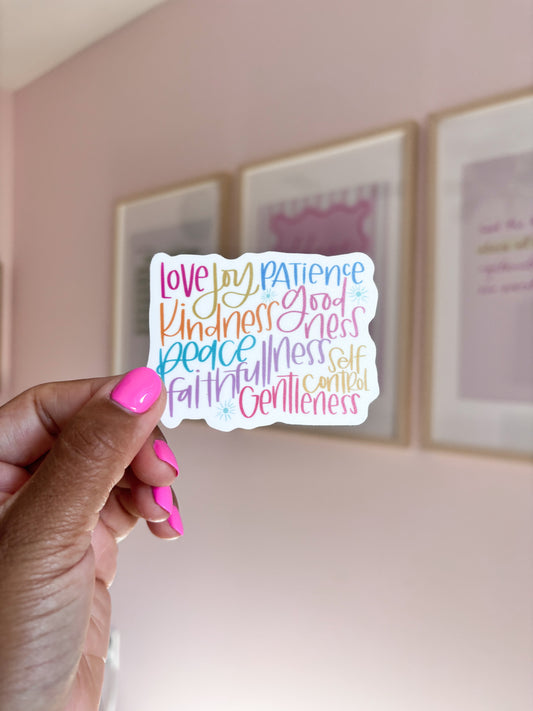 LOVE JOY PATIENCE
Kindness good
ness
peace
faithfullness self
control
Gentleness